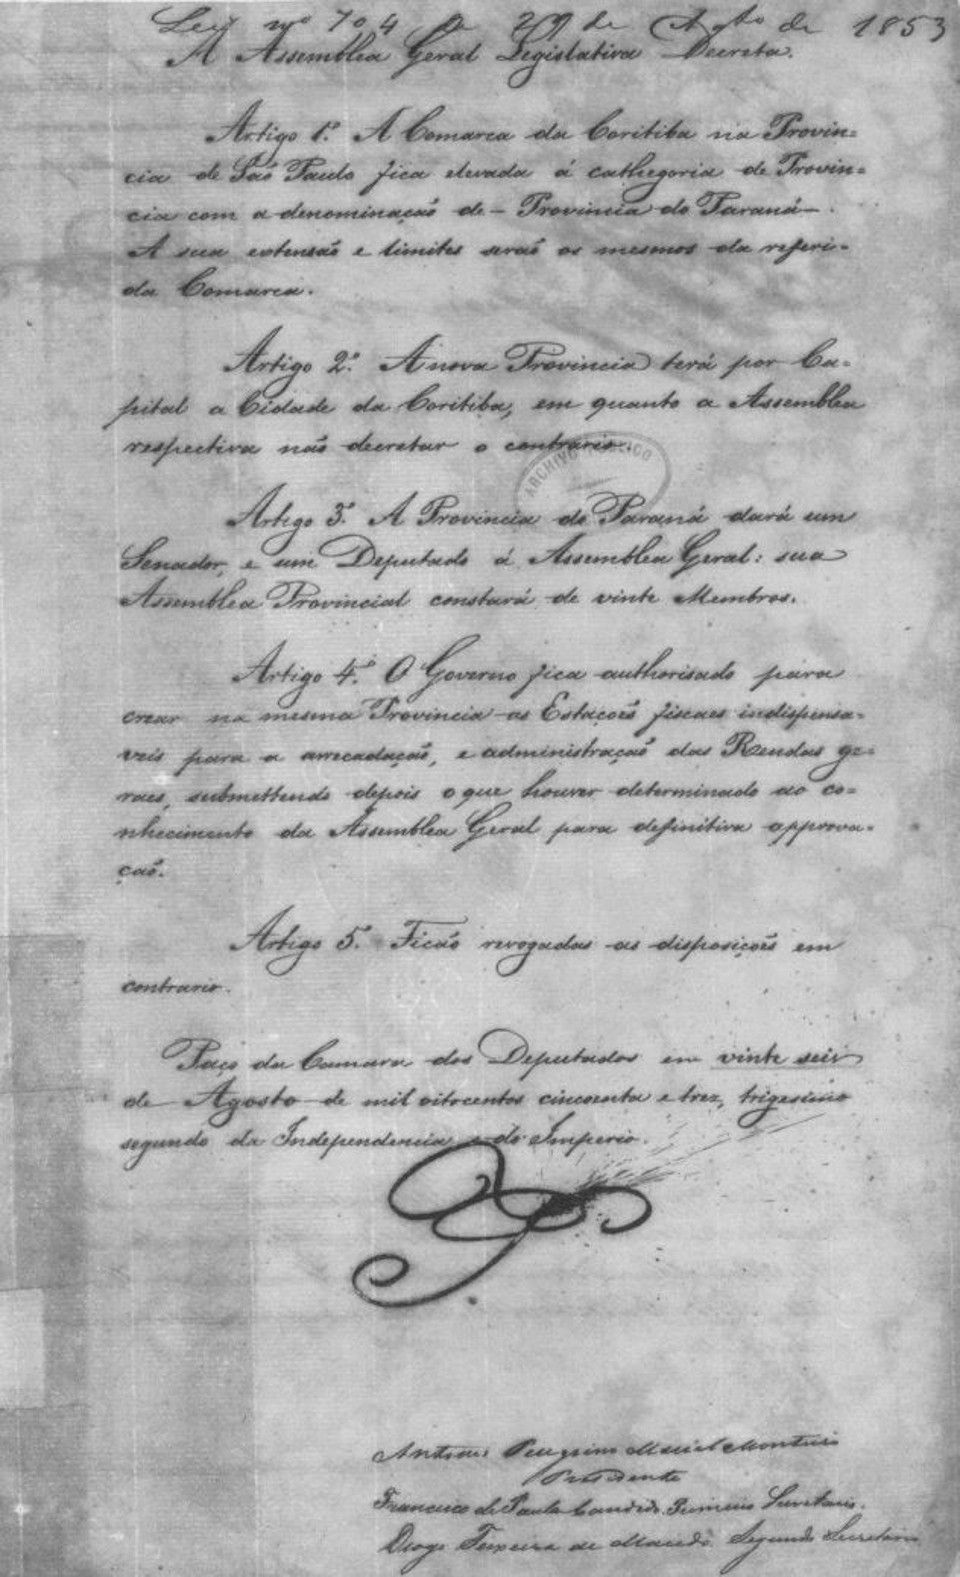 Ley nº 704 de 29 de Agto de 1853
A Assemblea Geral Legislativa Decreta.
Artigo 1º. A Comarca da Coritiba na Provin=
cia de São Paulo fica elevada á cathegoria de Provin=
cia com a denominação de - Provincia do Paraná -.
A sua extensão e limites serão os mesmos da referi=
da Comarca.
Artigo 2º. A nova Provincia terá por Ca=
pital a Cidade da Coritiba, em quanto a Assemblea
respectiva não decretar o contrario.
ARCHIVO PUBLICO
Artigo 3º. A Provincia do Paraná dará um
Senador, e um Deputado á Assemblea Geral: sua
Assemblea Provincial constará de vinte Membros.
Artigo 4º. O Governo fica authorisado para
crear na mesma Provincia as Estacoēs fiscaes indispensa=
veis para a arrecadação, e administração das Rendas ge=
raes, submettendo depois o que houver determinado ao co=
nhecimento da Assemblea Geral para definitiva approva=
ção.
Artigo 5º. Ficão revogadas as disposiçoēs em
contrario.
Paço da Camara dos Deputados em vinte seis
de Agosto de mil oitocentos cincoenta e trez, trigesimo
segundo da Independencia e do Imperio.
Antonio Peregrino Maciel Monteiro
Presidente
Francisco de Paula Candido Primeiro Secretario.
Diogo Teixeira de Macedo Segundo Secretario